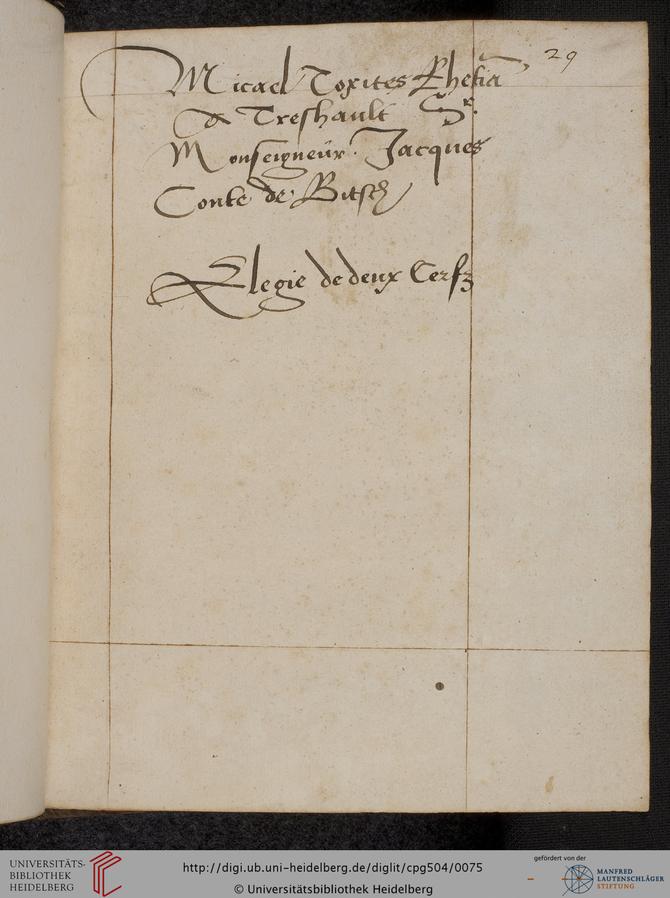 Micael Toxites Rhetiã, 29
A Treshault Sr.
Monseigneur Jacques
Conte de Bitsch
Elegie de deux Cerfz
UNIVERSITÄTS-
BIBLIOTHEK
HEIDELBERG
http://digi.ub.uni-heidelberg.de/diglit/cpg504/0075
© Universitätsbibliothek Heidelberg
gefördert von der
MANFRED
LAUTENSCHLÄGER
STIFTUNG